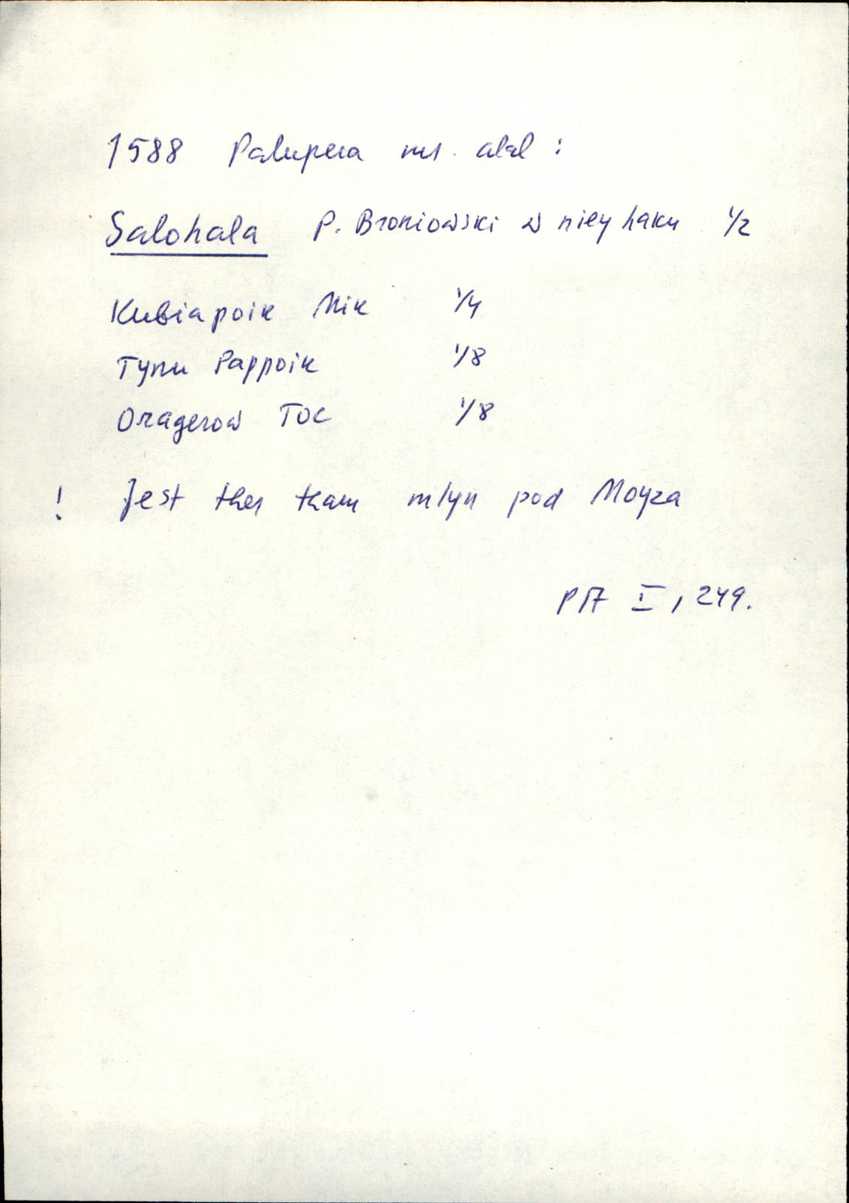 1588 Palupera ms. alal :
Salohala P. Broniowski w niey haku 1/2
Kubiapoik Nik 1/4
Tynu Pappoik 1/8
Oragerow Toc 1/8
! Jest thes tham mlyn pod Moyza
PA I, 249.